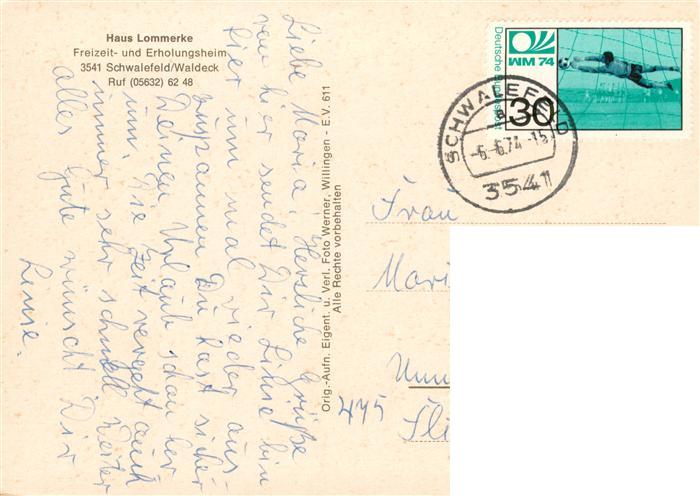 Haus Lommerke
Freizeit- und Erholungsheim
3541 Schwalefeld/Waldeck
Ruf (05632) 62 48
Liebe Maria, Herzliche Grüße
von hier sendet Dir Linie bin
hier um mal wieder aus-
zuspannen Du hast sicher
Deinen Urlaub schon her
um. Die Zeit vergeht auch
immer sehr schnell Weiter
alles Gute wünscht Dir
Linie.
Orig.-Aufn. Eigent. u. Verl. Foto Werner, Willingen - E.V. 611
Alle Rechte vorbehalten
Deutsche Bundespost
WM 74
30
SCHWALEFELD
-6.-6.74-15
3541
Frau
Mari
Unn
475